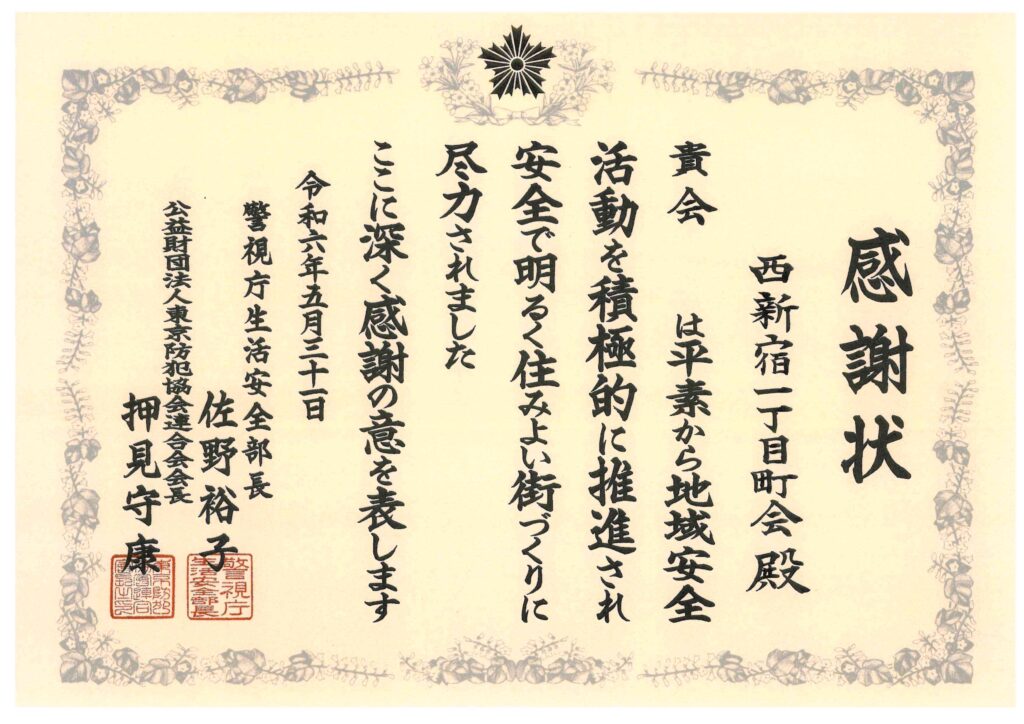 感謝状
西新宿一丁目町会殿
貴会は平素から地域安全
活動を積極的に推進され
安全で明るく住みよい街づくりに
尽力されました
ここに深く感謝の意を表します
令和六年五月三十一日
警視庁生活安全部長
佐野裕子
警視庁
生活安全部長
公益財団法人東京防犯協会連合会会長
押見守康